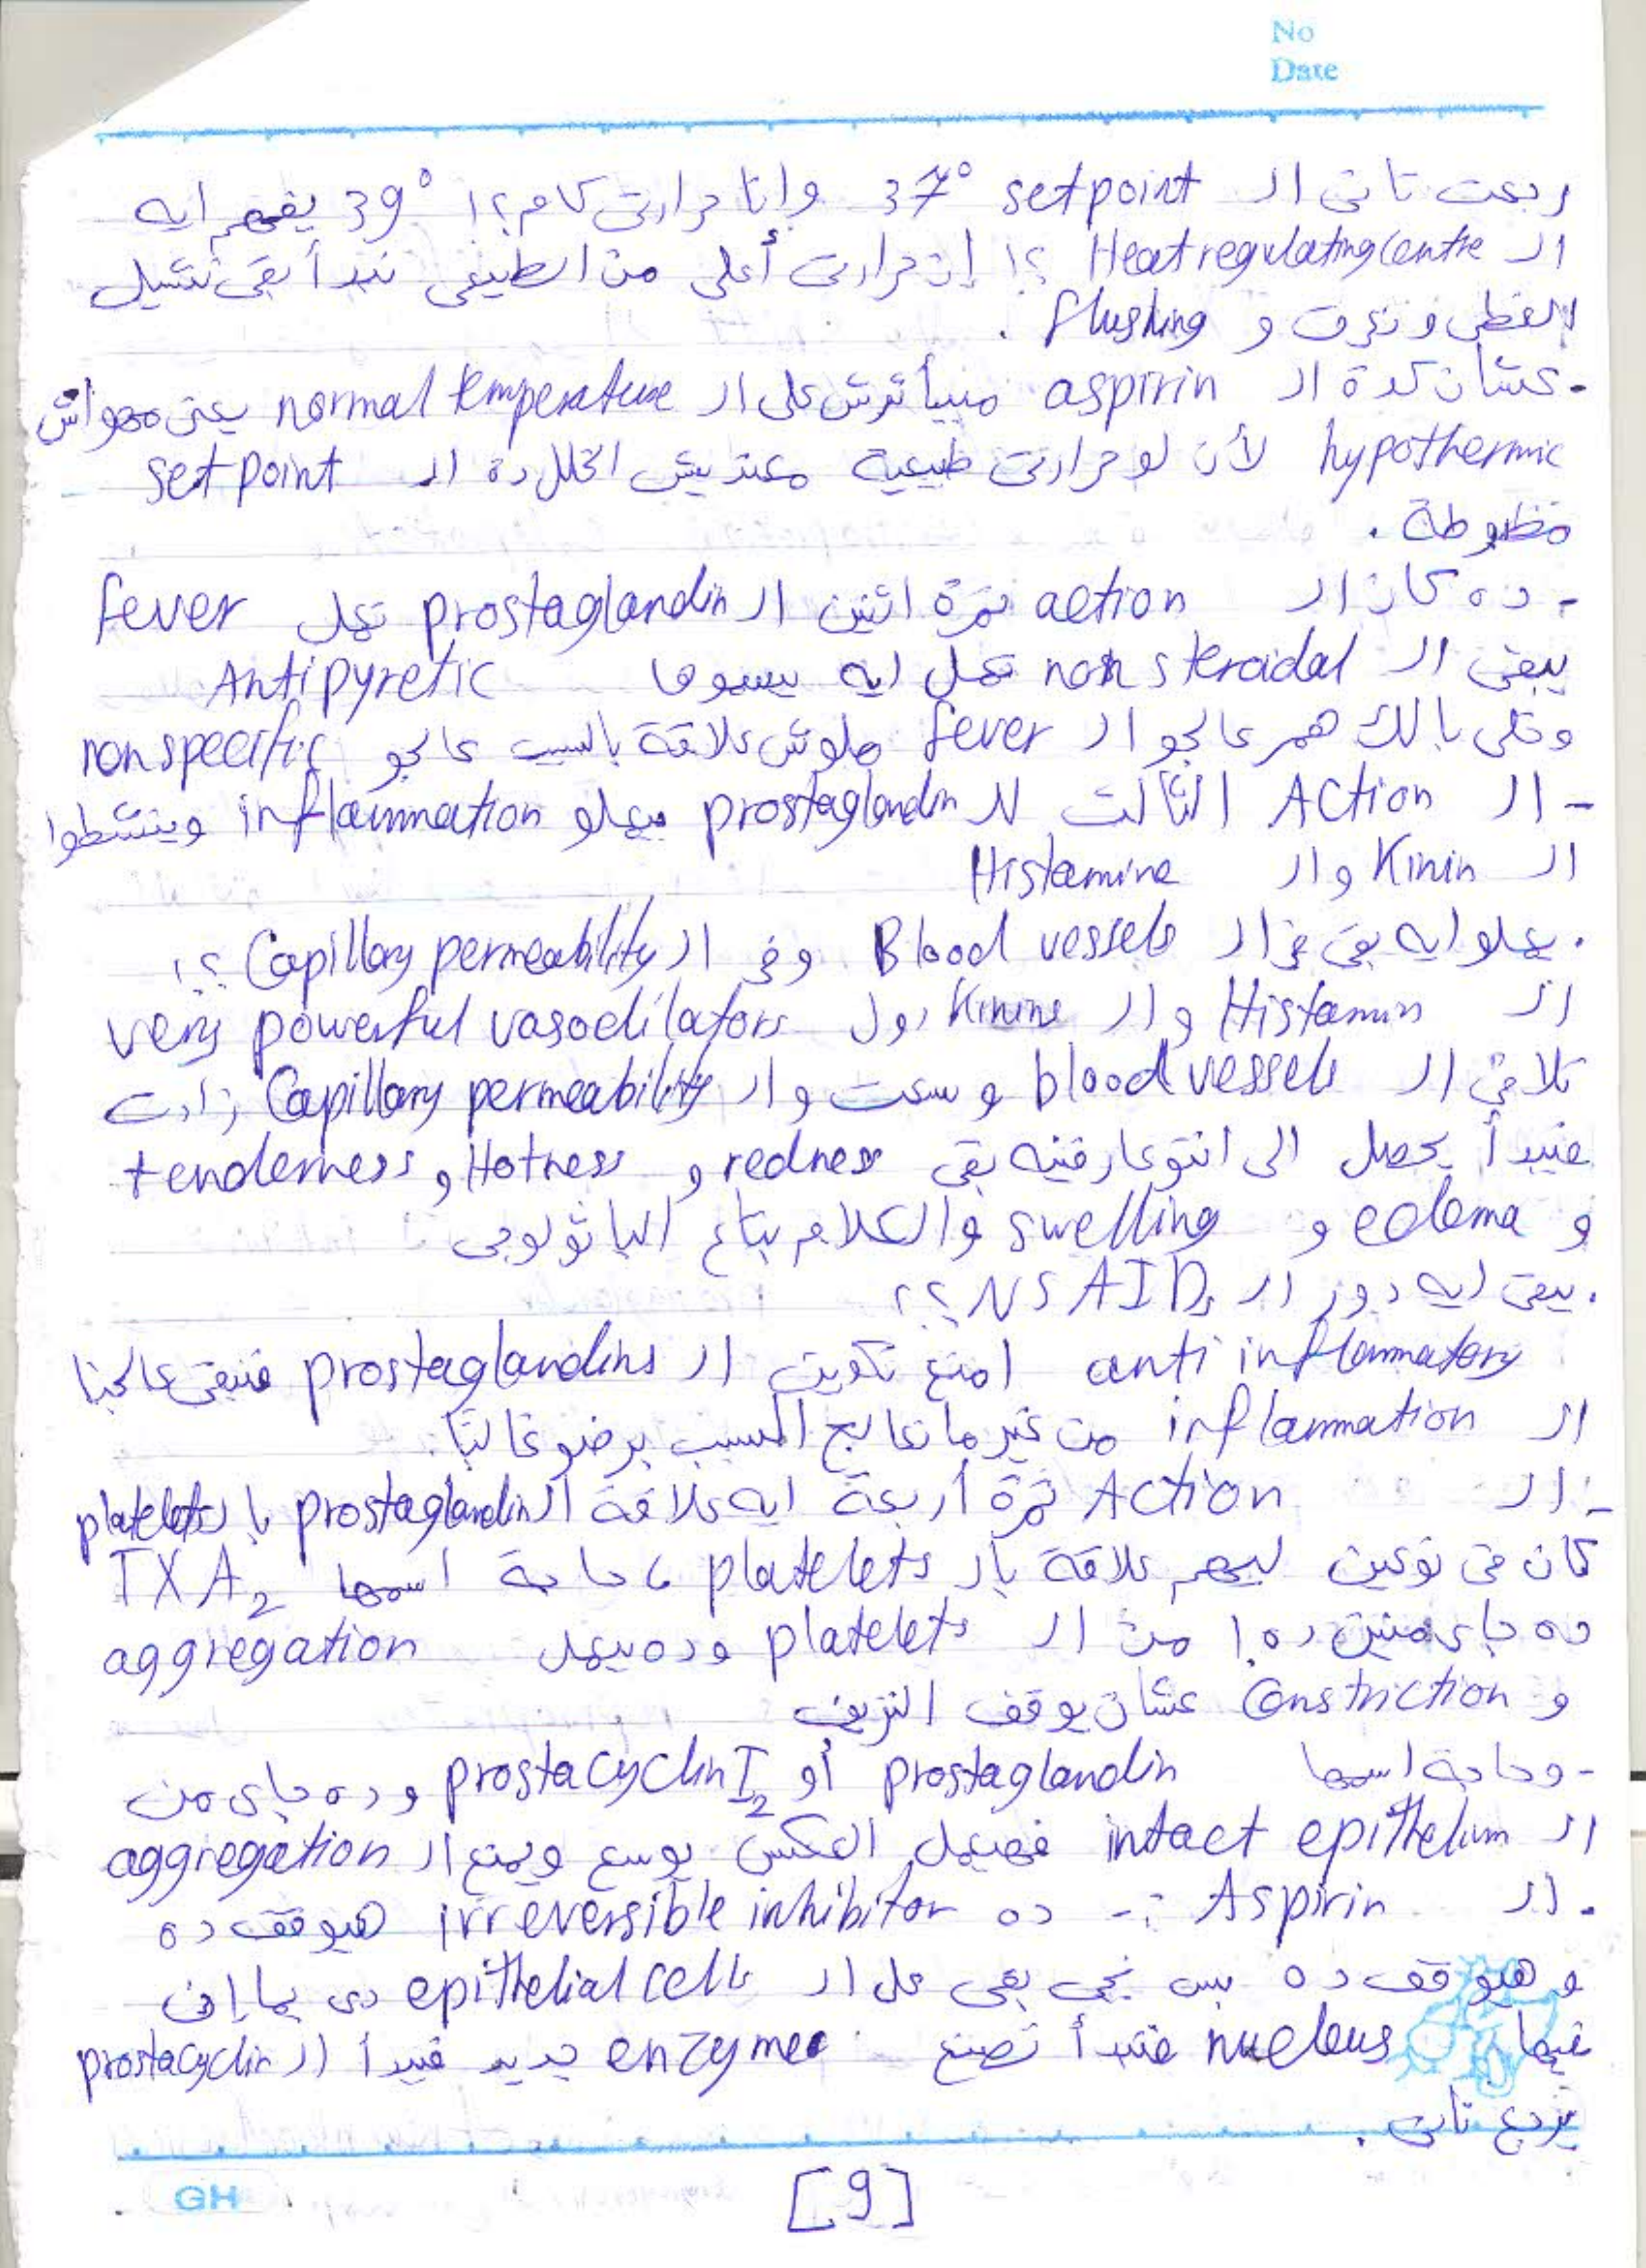 No
Date
رجعت تانى الـ setpoint 37° وانا حرارتى كام؟! 39° يفهم ايه
الـ Heat regulating centre ؟! إن حرارتى أعلى من الطبيعى نبدأ بقى نشيل
الغطى ونعرق و flushing .
- عشان كدة الـ aspirin مبيأثرش على الـ normal temperature يعنى مهواش
hypothermic لأن لو حرارتى طبيعية معنديش الخلل دة الـ set point
مظبوطة .
- ده كان الـ action نمرة اتنين الـ prostaglandin تعمل fever
يبقى الـ non steroidal تعمل ايه يسموها Antipyretic
وخلى بالك هم عالجو الـ fever ملوش علاقة بالسبب عالجو nonspecific
- الـ Action التالت للـ prostaglandin بيعملو inflammation وينشطوا
الـ Kinin والـ Histamine
. يعملو ايه بقى فى الـ Blood vessels وفى الـ Capillary permeability ؟!
الـ Histamin والـ Kinine دول very powerful vasodilators
تلاقى الـ blood vessels وسعت والـ Capillary permeability زادت
فيبدأ يحصل الى انتو عارفينه بقى redness و Hotness و tenderness
و edema و swelling والكلام بتاع الباثولوجى
. يبقى ايه دور الـ NSAIDs ؟؟
anti inflammatory امنع تكوين الـ prostaglandins فنبقى عالجنا
الـ inflammation من غير ما نعالج السبب برضو غالبًا.
- الـ Action نمرة أربعة ايه علاقة الـ prostaglandin بالـ platelets
كان فى نوعين ليهم علاقة بالـ platelets ، حاجة اسمها TXA2
ده جاى منين ده ! من الـ platelets وده بيعمل aggregation
و Constriction عشان يوقف النزيف
- وحاجة اسمها prostaglandin أو prostacyclin I2 وده جاى من
الـ intact epithelium فهيعمل العكس يوسع ويمنع الـ aggregation
. الـ Aspirin :- ده irreversible inhibitor هيوقف ده
و هيوقف ده بس نجى بقى على الـ epithelial cells دى بما إن
فيها nucleus فتبدأ تصنع enzymes جديد فيبدأ الـ prostacyclin
يرجع تانى .
GH
[9]